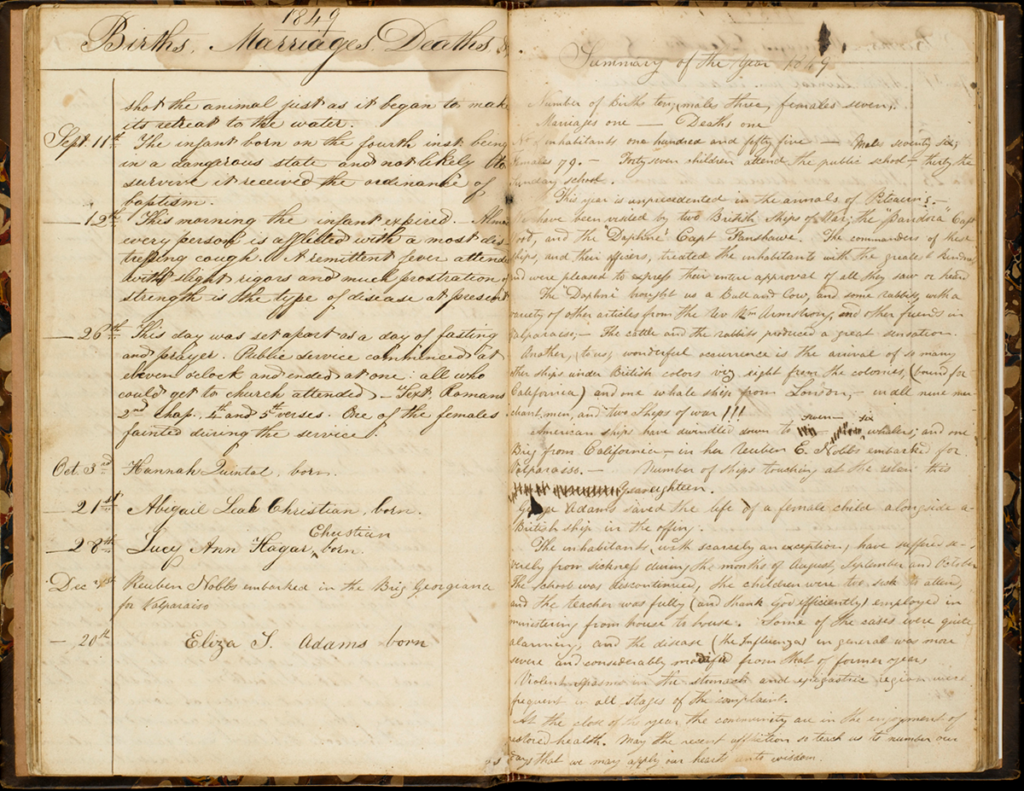 1849
Births, Marriages, Deaths &
shot the animal just as it began to make
its retreat to the water.
Sept. 11th The infant born on the fourth inst being
in a dangerous state and not likely to
survive it received the ordinance of
baptism.
— 12th This morning the infant expired. Almo
every person is afflicted with a most dis
tressing cough. A remittent fever attende
with slight rigors and much prostration of
strength is the type of disease at present
— 26th This day was set apart as a day of fasting
and prayer. Public service commenced at
eleven o'clock and ended at one: all who
could get to church attended — Text. Romans
2nd chap. 4th and 5th verses. One of the females
fainted during the service.
Oct 3rd Hannah Quintal born.
— 21st Abigail Leah Christian, born.
Christian
— 28th Lucy Ann Hagar, born.
Dec Reuben Nobbs embarked in the Brig Georgeana
for Valparaiso
— 20th Eliza S. Adams born
Summary of the Year 1849
Number of Births ten, male three, females seven;
Marriages one — Deaths one
No of inhabitants one hundred and fifty five — Male seventy six;
females 79. — Forty seven children attend the public school — thirty the
Sunday school.
This year is unprecedented in the annals of Pitcairns.
We have been visited by two British Ships of War; the "Pandora" Capt
and the "Daphne" Capt Fanshawe. The commanders of these
ships, and their officers, treated the inhabitants with the greatest kindness
and were pleased to express their entire approval of all they saw or heard
The "Daphne" brought us a Bull and Cow, and some rabbits, with a
variety of other articles from the Rev Wm Armstrong, and other friends in
Valparaiso, — The cattle and the rabbits produced a great sensation.
Another, (to us) wonderful occurrence is the arrival of so many
other ships under British colors viz eight from the colonies, (bound for
California) and one whale ship from London, — in all nine mer
chant men, and two Ships of war !!!
seven six
American ships have dwindled down to whalers; and one
Brig from California — in her Reuben E. Nobbs embarked for
Valparaiso. — Number of ships touching at the island this
Year eighteen.
George Adams saved the life of a female child alongside a
British ship in the offing.
The inhabitants, with scarcely an exception, have suffered se-
verely from sickness during the months of August, September and October
The school was discontinued, the children were too sick to attend,
and the teacher was fully (and thank God efficiently) employed in
ministering from house to house. Some of the cases were quite
alarming, and the disease (the Influenza) in general was more
severe and considerably modified from that of former years
Violent spasms in the stomach and epigastric region were
frequent in all stages of the complaint.
At the close of the year the community are in the enjoyment of
restored health. May the recent affliction so teach us to number our
days that we may apply our hearts unto wisdom.